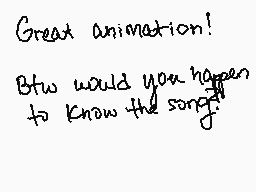 Great animation!
Btw would you happen
to know the song?